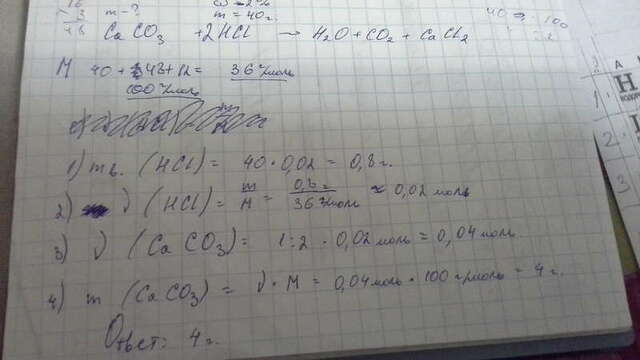 m - ?
ω = 2%
m = 40 г.
CaCO₃ + 2HCl → H₂O + CO₂ + CaCl₂
M 40 + 48 + 12 = 36 г/моль
100 г/моль
1) m в. (HCl) = 40 · 0,02 = 0,8 г.
2) ν (HCl) = m/M = 0,8 г/36 г/моль ≈ 0,02 моль
3) ν (CaCO₃) = 1:2 · 0,02 моль = 0,04 моль
4) m (CaCO₃) = ν · M = 0,04 моль · 100 г/моль = 4 г.
Ответ: 4 г.